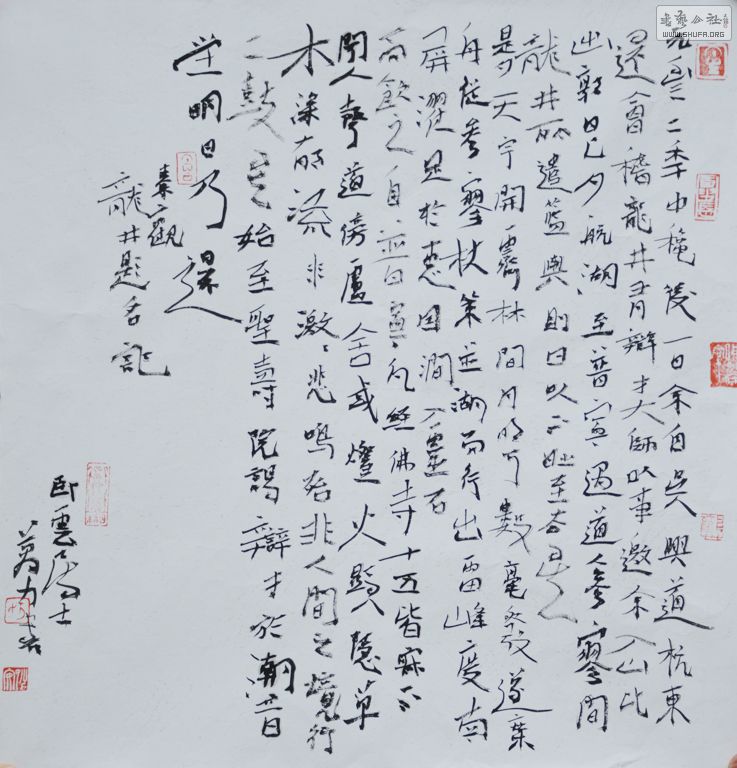 元豐二季中穐後一日余自吳興道杭東
還會稽龍井有辯才大師以事邀余入山比
出郭日已夕航湖至普寧遇道人參寥問
龍井所遣籃輿則曰以不時至去矣
是夕天宇開霽林間月明可數毫髮遂棄
舟從參寥杖策並湖而行出雷峰度南
屏濯足於惠因澗入靈石
而飲之自普寧凡經佛寺十五皆寂不
聞人聲道傍廬舍或燈火顯隱草
木深蔚流激激悲鳴殆非人間之境行
二鼓矣始至聖壽院謁辯才於潮音
堂明日乃還
秦觀
龍井題名記
臥雲居士
書艺公社
WWW.SHUFA.ORG